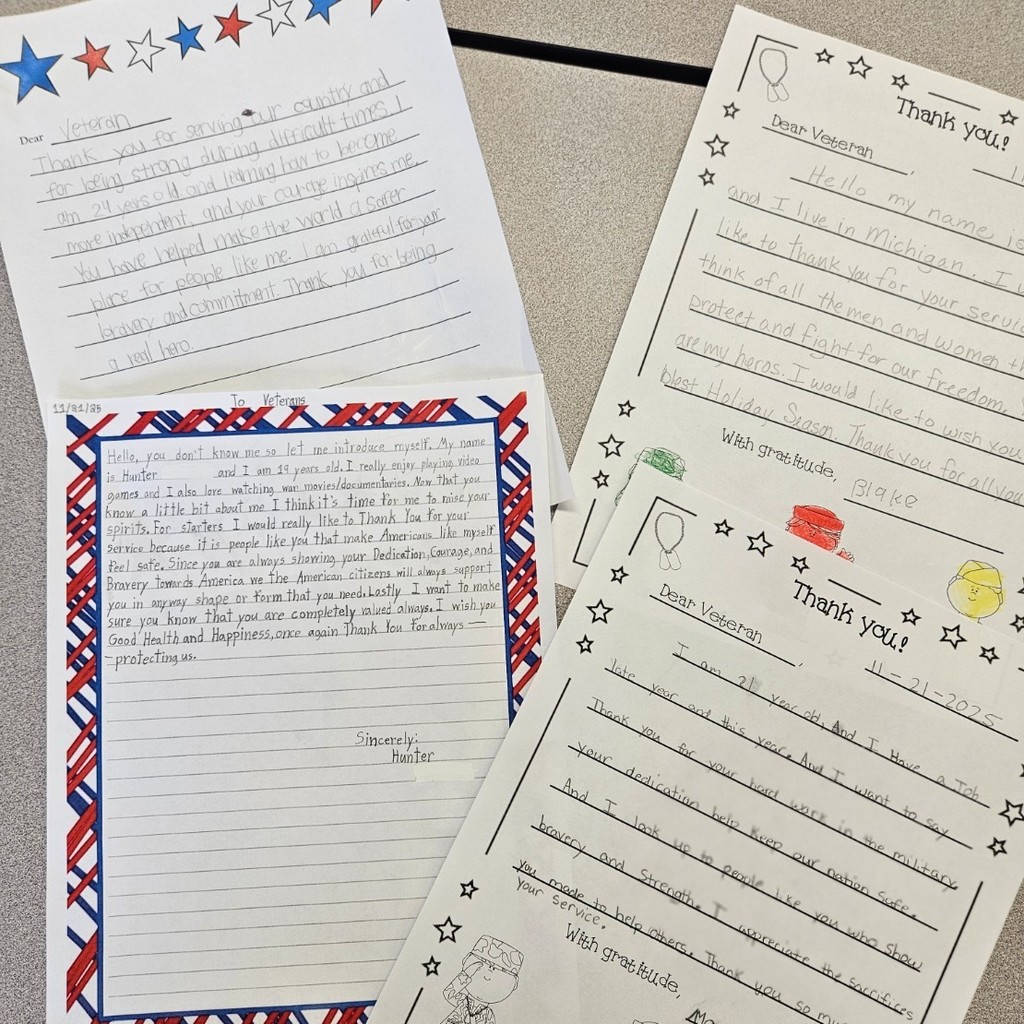 Dear Veteran
Thank you for serving our country and
for being strong during difficult times. I
am 24 years old and learning how to become
more independent, and your courage inspires me.
You have helped make the world a safer
place for people like me. I am grateful for your
bravery and commitment. Thank you for being
a real hero.
11/21/25
To Veterans
Hello, you don't know me so let me introduce myself. My name
is Hunter and I am 19 years old. I really enjoy playing video
games and I also love watching war movies/documentaries. Now that you
know a little bit about me I think it's time for me to raise your
spirits. For starters I would really like to Thank You for your
service because it is people like you that make Americans like myself
feel safe. Since you are always showing your Dedication, Courage, and
Bravery towards America we the American citizens will always support
you in anyway shape or form that you need. Lastly I want to make
sure you know that you are completely valued always. I wish you
Good Health and Happiness, once again Thank You for always —
-protecting us.
Sincerely:
Hunter
Thank you!
Dear Veteran,
Hello my name is
and I live in Michigan. I
like to thank you for your
think of all the men and women
protect and fight for our freedom.
are my heros. I would like to wish you
best Holiday Season. Thank you for all you
With gratitude,
Blake
Thank you!
Dear Veteran,
11-21-2025
I am 21 year old. And I Have a Job
late year and this year. And I want to say
Thank you for your hard work in the military
your dedication help keep our nation safe.
And I look up to people like you who show
bravery and strength. I appreciate the sacrifices
you made to help others. Thank you so
your service.
With gratitude,